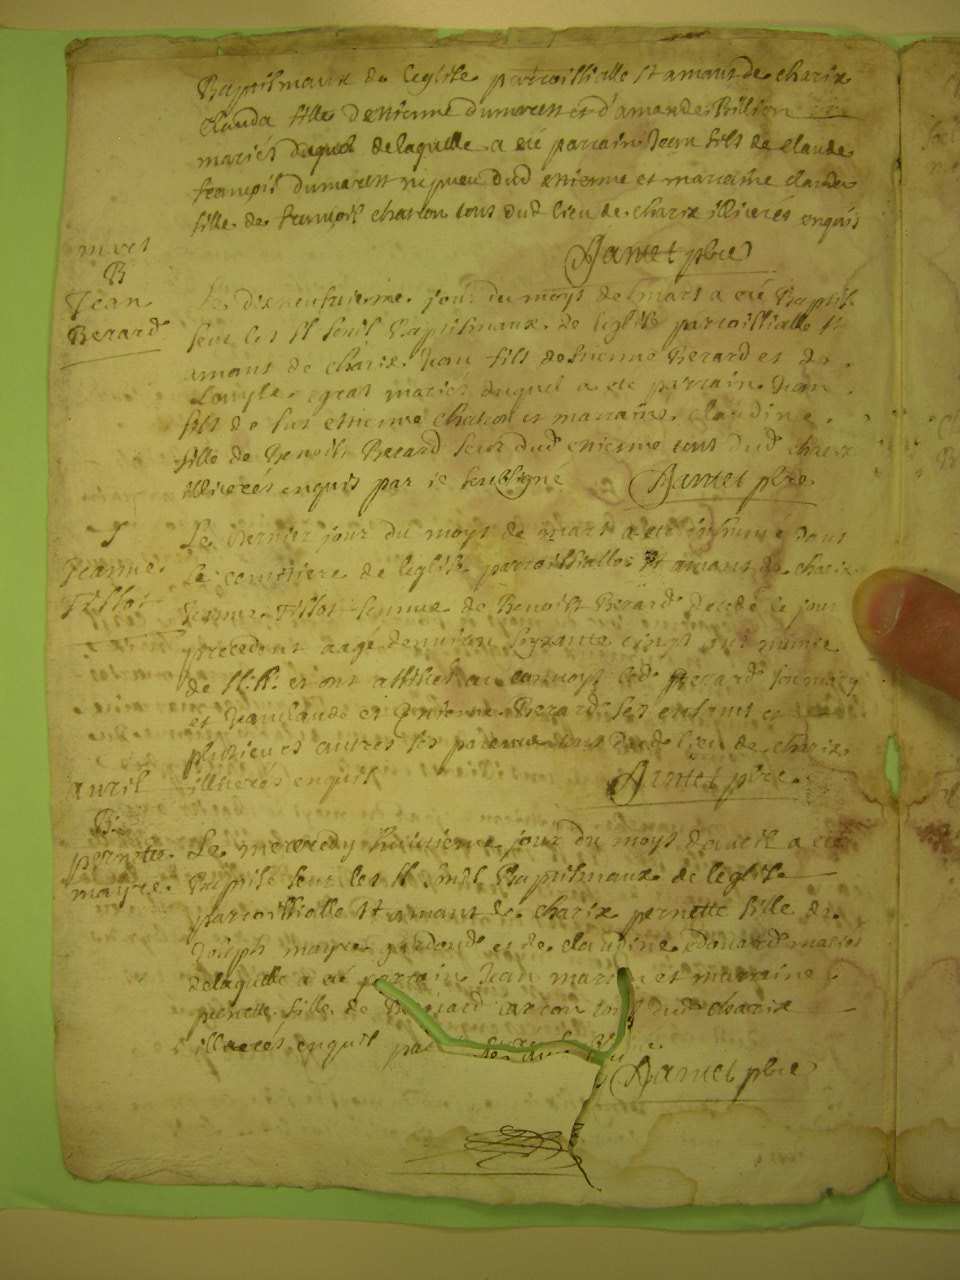 Baptismaux de leglise parroissialle St amand de charix
clauda fille destienne dumarest et d'amande Billion
mariés duquel delaquelle a eté parrain Jean fils de claude
françois dumarest nepveu dud estienne et marraine clauda
fille de françois chatron tous dud lieu de charix illiterés enquis
Jantet pbre
mars
B
Jean
Berard
Le dixneufvieme jour du moys de mars a eté Baptisé
seur les St fonts Baptismaux de leglise parroissialle St
amant de charix Jean fils destienne Berard et de
mariés duquel a eté parrain Jean
fils de feu estienne chatron et marraine claudine
fille de Benoist Berard seur dud estienne tous dud charix
illiteres enquis par je soubsigné Jantet pbre
S
Jeanne
Tissot
Le dernier jour du moys de mars a eté inhumé dans
le cemittiere de leglise parroissialle St amant de charix
Jeanne Tissot femme de Benoist Berard decedé le jour
precedent aagé denviron soixante cinq munie
de St et ont assisté au convoys led Berard son mary
et Jean claude et estienne Berard ses enfants et
plusieurs autres ses parents tous dud lieu de charix
illiterés enquis Jantet pbre
avril
B
pernette
mayre
Le mecredy huitieme jour du moys davril a eté
Baptisé seur les St fonts Baptismaux de leglise
parroissialle St amant de charix pernette fille de
Joseph mayre et de claudine edouard mariés
delaquelle a eté parrain Jean et marraine
pernette fille de tous dud charix
illiteres enquis par
Jantet pbre